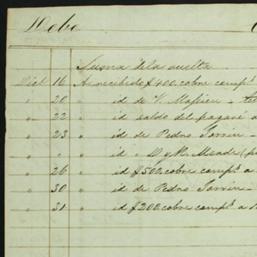 Debe
Suma de la vuelta
Dict 16 " An recibido $400 cobre camp.
" 20 " id de V. Mafrieu
" 22 " id saldo del pagaré a
" 23 " id de Pedro Torrin
" " " id " D y R. Meade
" 26 " id $500 cobre camp. a
" 30 " id de Pedro Torrin
" 31 " id $200 cobre camp. a